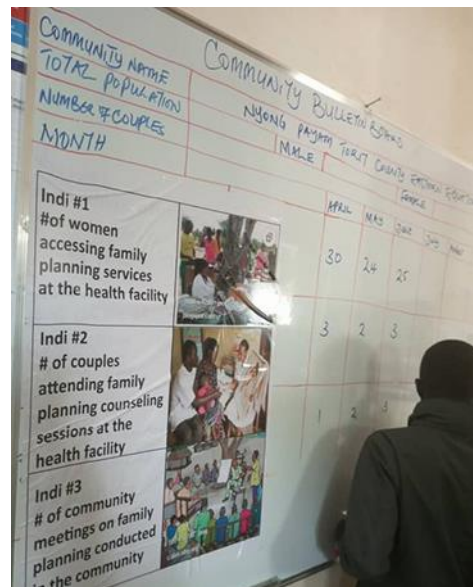 COMMUNITY BULLETIN BOARD
COMMUNITY NAME
NYONG PAYAM TORIT COUNTY EASTERN
TOTAL POPULATION
MALE
FEMALE
NUMBER OF COUPLES
MONTH
APRIL MAY JUNE JULY
Indi #1
#of women
accessing family
planning services
at the health facility
30 24 25
Indi #2
# of couples
attending family
planning counseling
sessions at the
health facility
3 2 3
Indi #3
# of community
meetings on family
planning conducted
in the community
1 2 3